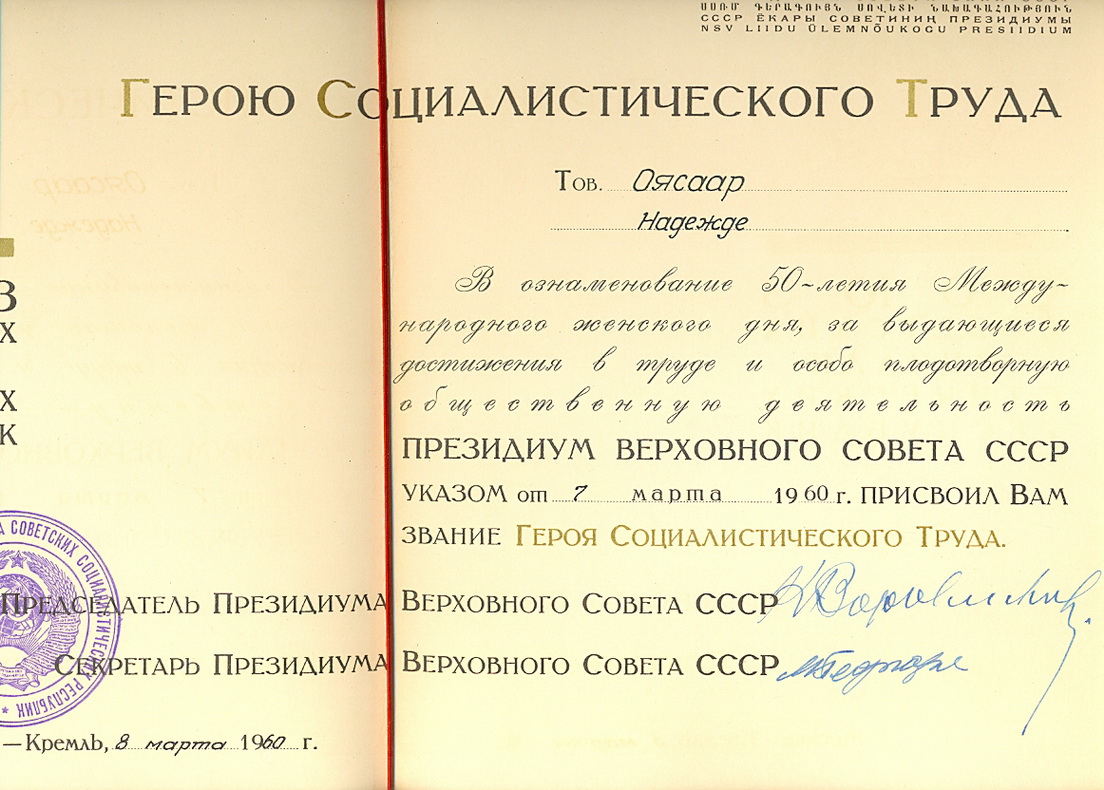 ՍՍՌՄ ԳԵՐԱԳՈՒՅՆ ՍՈՎԵՏԻ ՆԱԽԱԳԱՀՈՒԹՅՈՒՆ
СССР ЁКАРЫ СОВЕТИНИҢ ПРЕЗИДИУМЫ
NSV LIIDU ÜLEMNÕUKOGU PRESIIDIUM
ГЕРОЮ СОЦИАЛИСТИЧЕСКОГО ТРУДА
Тов. Оясаар
Надежде
В ознаменование 50-летия Между-
народного женского дня, за выдающиеся
достижения в труде и особо плодотворную
общественную деятельность
ПРЕЗИДИУМ ВЕРХОВНОГО СОВЕТА СССР
УКАЗОМ от 7 марта 1960 г. ПРИСВОИЛ ВАМ
ЗВАНИЕ ГЕРОЯ СОЦИАЛИСТИЧЕСКОГО ТРУДА.
З
Х
Х
К
СОВЕТСКИХ СОЦИАЛИСТИЧЕСКИХ РЕСПУБЛИК
ПРЕДСЕДАТЕЛЬ ПРЕЗИДИУМА ВЕРХОВНОГО СОВЕТА СССР
СЕКРЕТАРЬ ПРЕЗИДИУМА ВЕРХОВНОГО СОВЕТА СССР
—Кремль, 8 марта 1960 г.